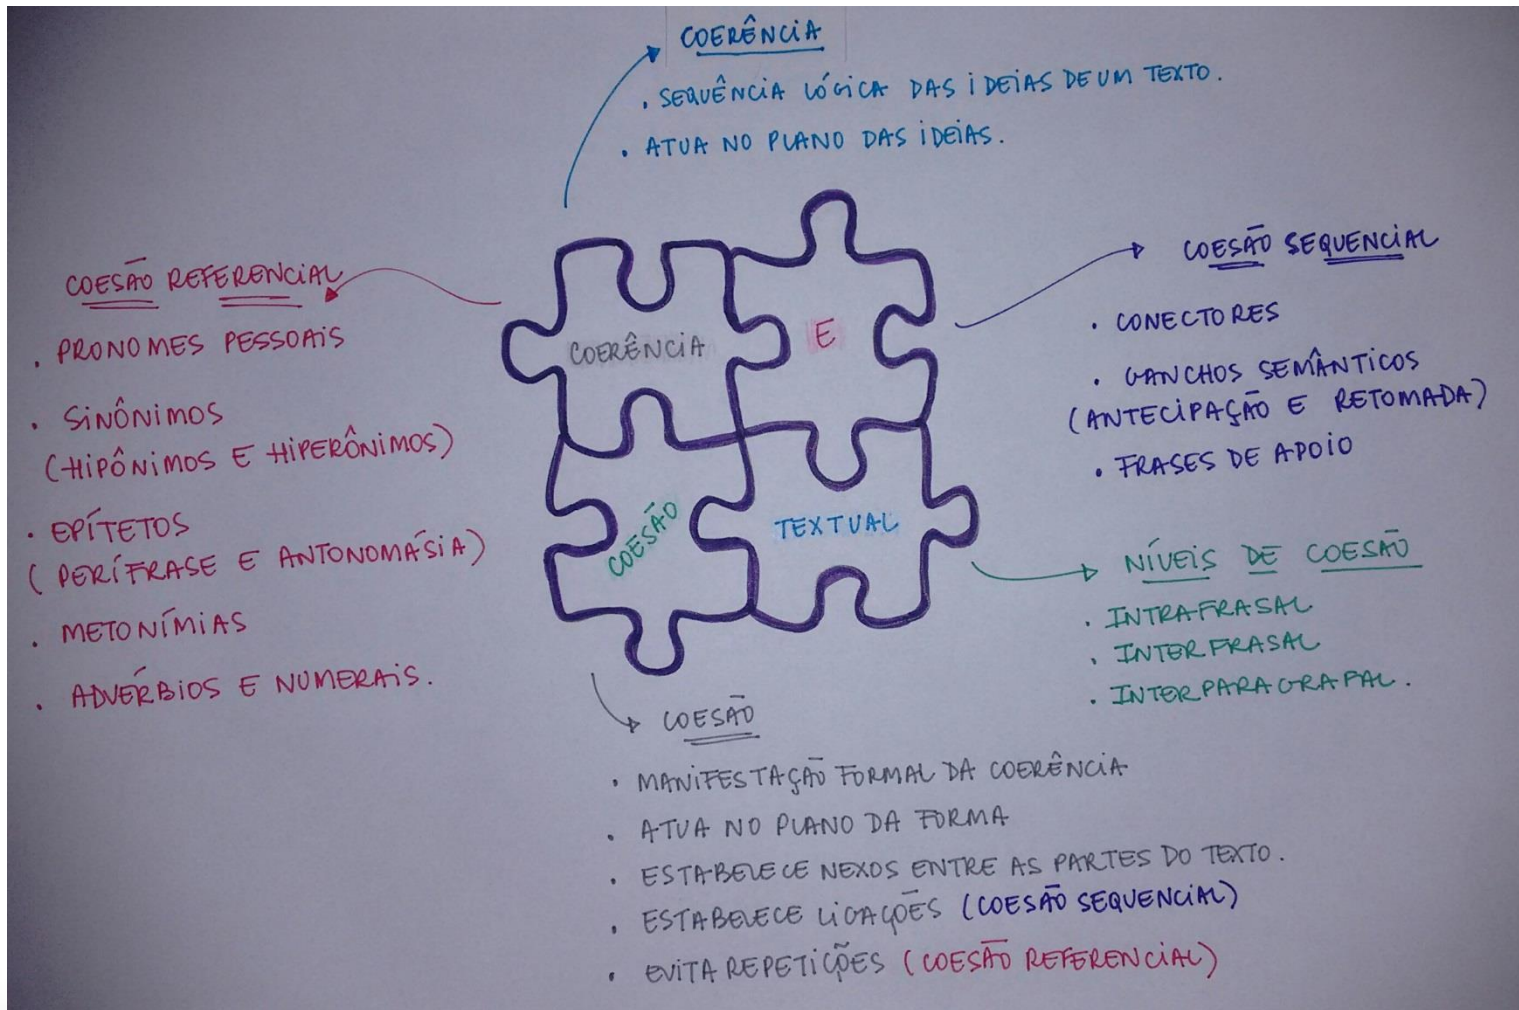 COERÊNCIA
. SEQUÊNCIA LÓGICA DAS IDEIAS DE UM TEXTO.
. ATUA NO PLANO DAS IDEIAS.
COESÃO REFERENCIAL
. PRONOMES PESSOAIS
. SINÔNIMOS
(HIPÔNIMOS E HIPERÔNIMOS)
. EPÍTETOS
(PERÍFRASE E ANTONOMÁSIA)
. METONÍMIAS
. ADVÉRBIOS E NUMERAIS.
COERÊNCIA
E
COESÃO
TEXTUAL
COESÃO SEQUENCIAL
. CONECTORES
. GANCHOS SEMÂNTICOS
(ANTECIPAÇÃO E RETOMADA)
. FRASES DE APOIO
NÍVEIS DE COESÃO
. INTRAFRASAL
. INTERFRASAL
. INTERPARAGRAFAL.
COESÃO
. MANIFESTAÇÃO FORMAL DA COERÊNCIA
. ATUA NO PLANO DA FORMA
. ESTABELECE NEXOS ENTRE AS PARTES DO TEXTO.
. ESTABELECE LIGAÇÕES (COESÃO SEQUENCIAL)
. EVITA REPETIÇÕES (COESÃO REFERENCIAL)